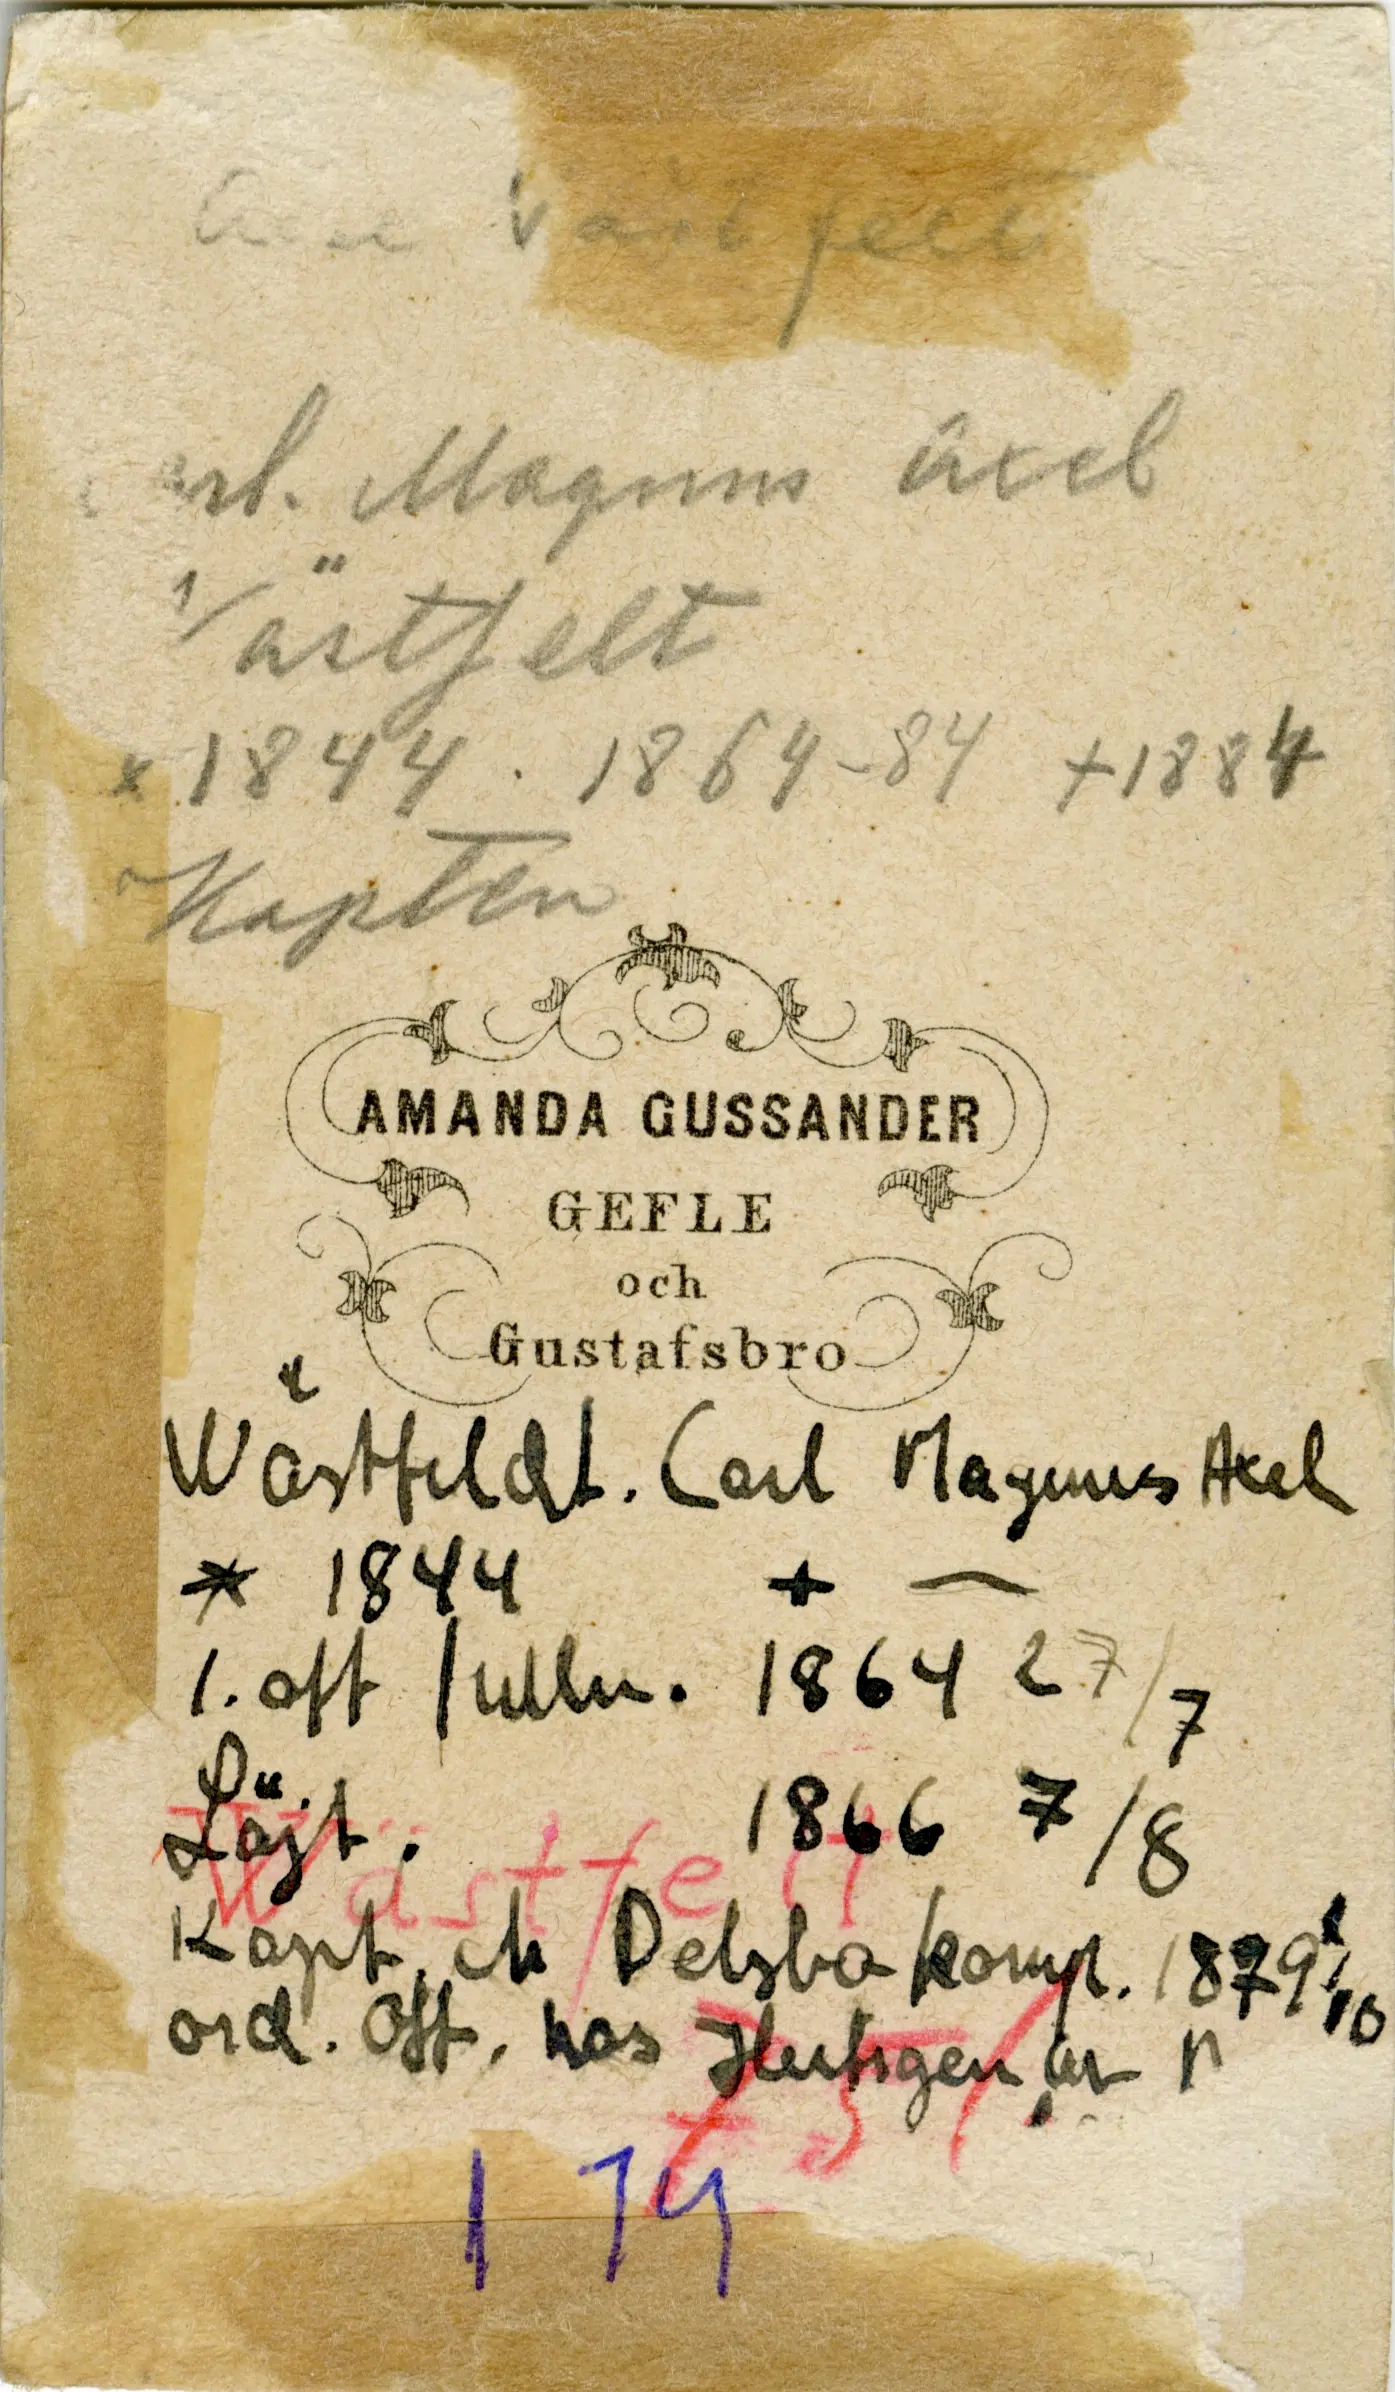 Axel Västfelt
Carl. Magnus Axel
Västfelt
* 1844 . 1864-84 +1884
Kapten
AMANDA GUSSANDER
GEFLE
och
Gustafsbro
Wästfeldt. Carl Magnus Axel
* 1844 + —
1. off 1864 27/7
Löjt. 1866 7/8
Wästfelt
Kapt. ch Delsbo komp. 1879 /10
ord. Off. hos
751
174